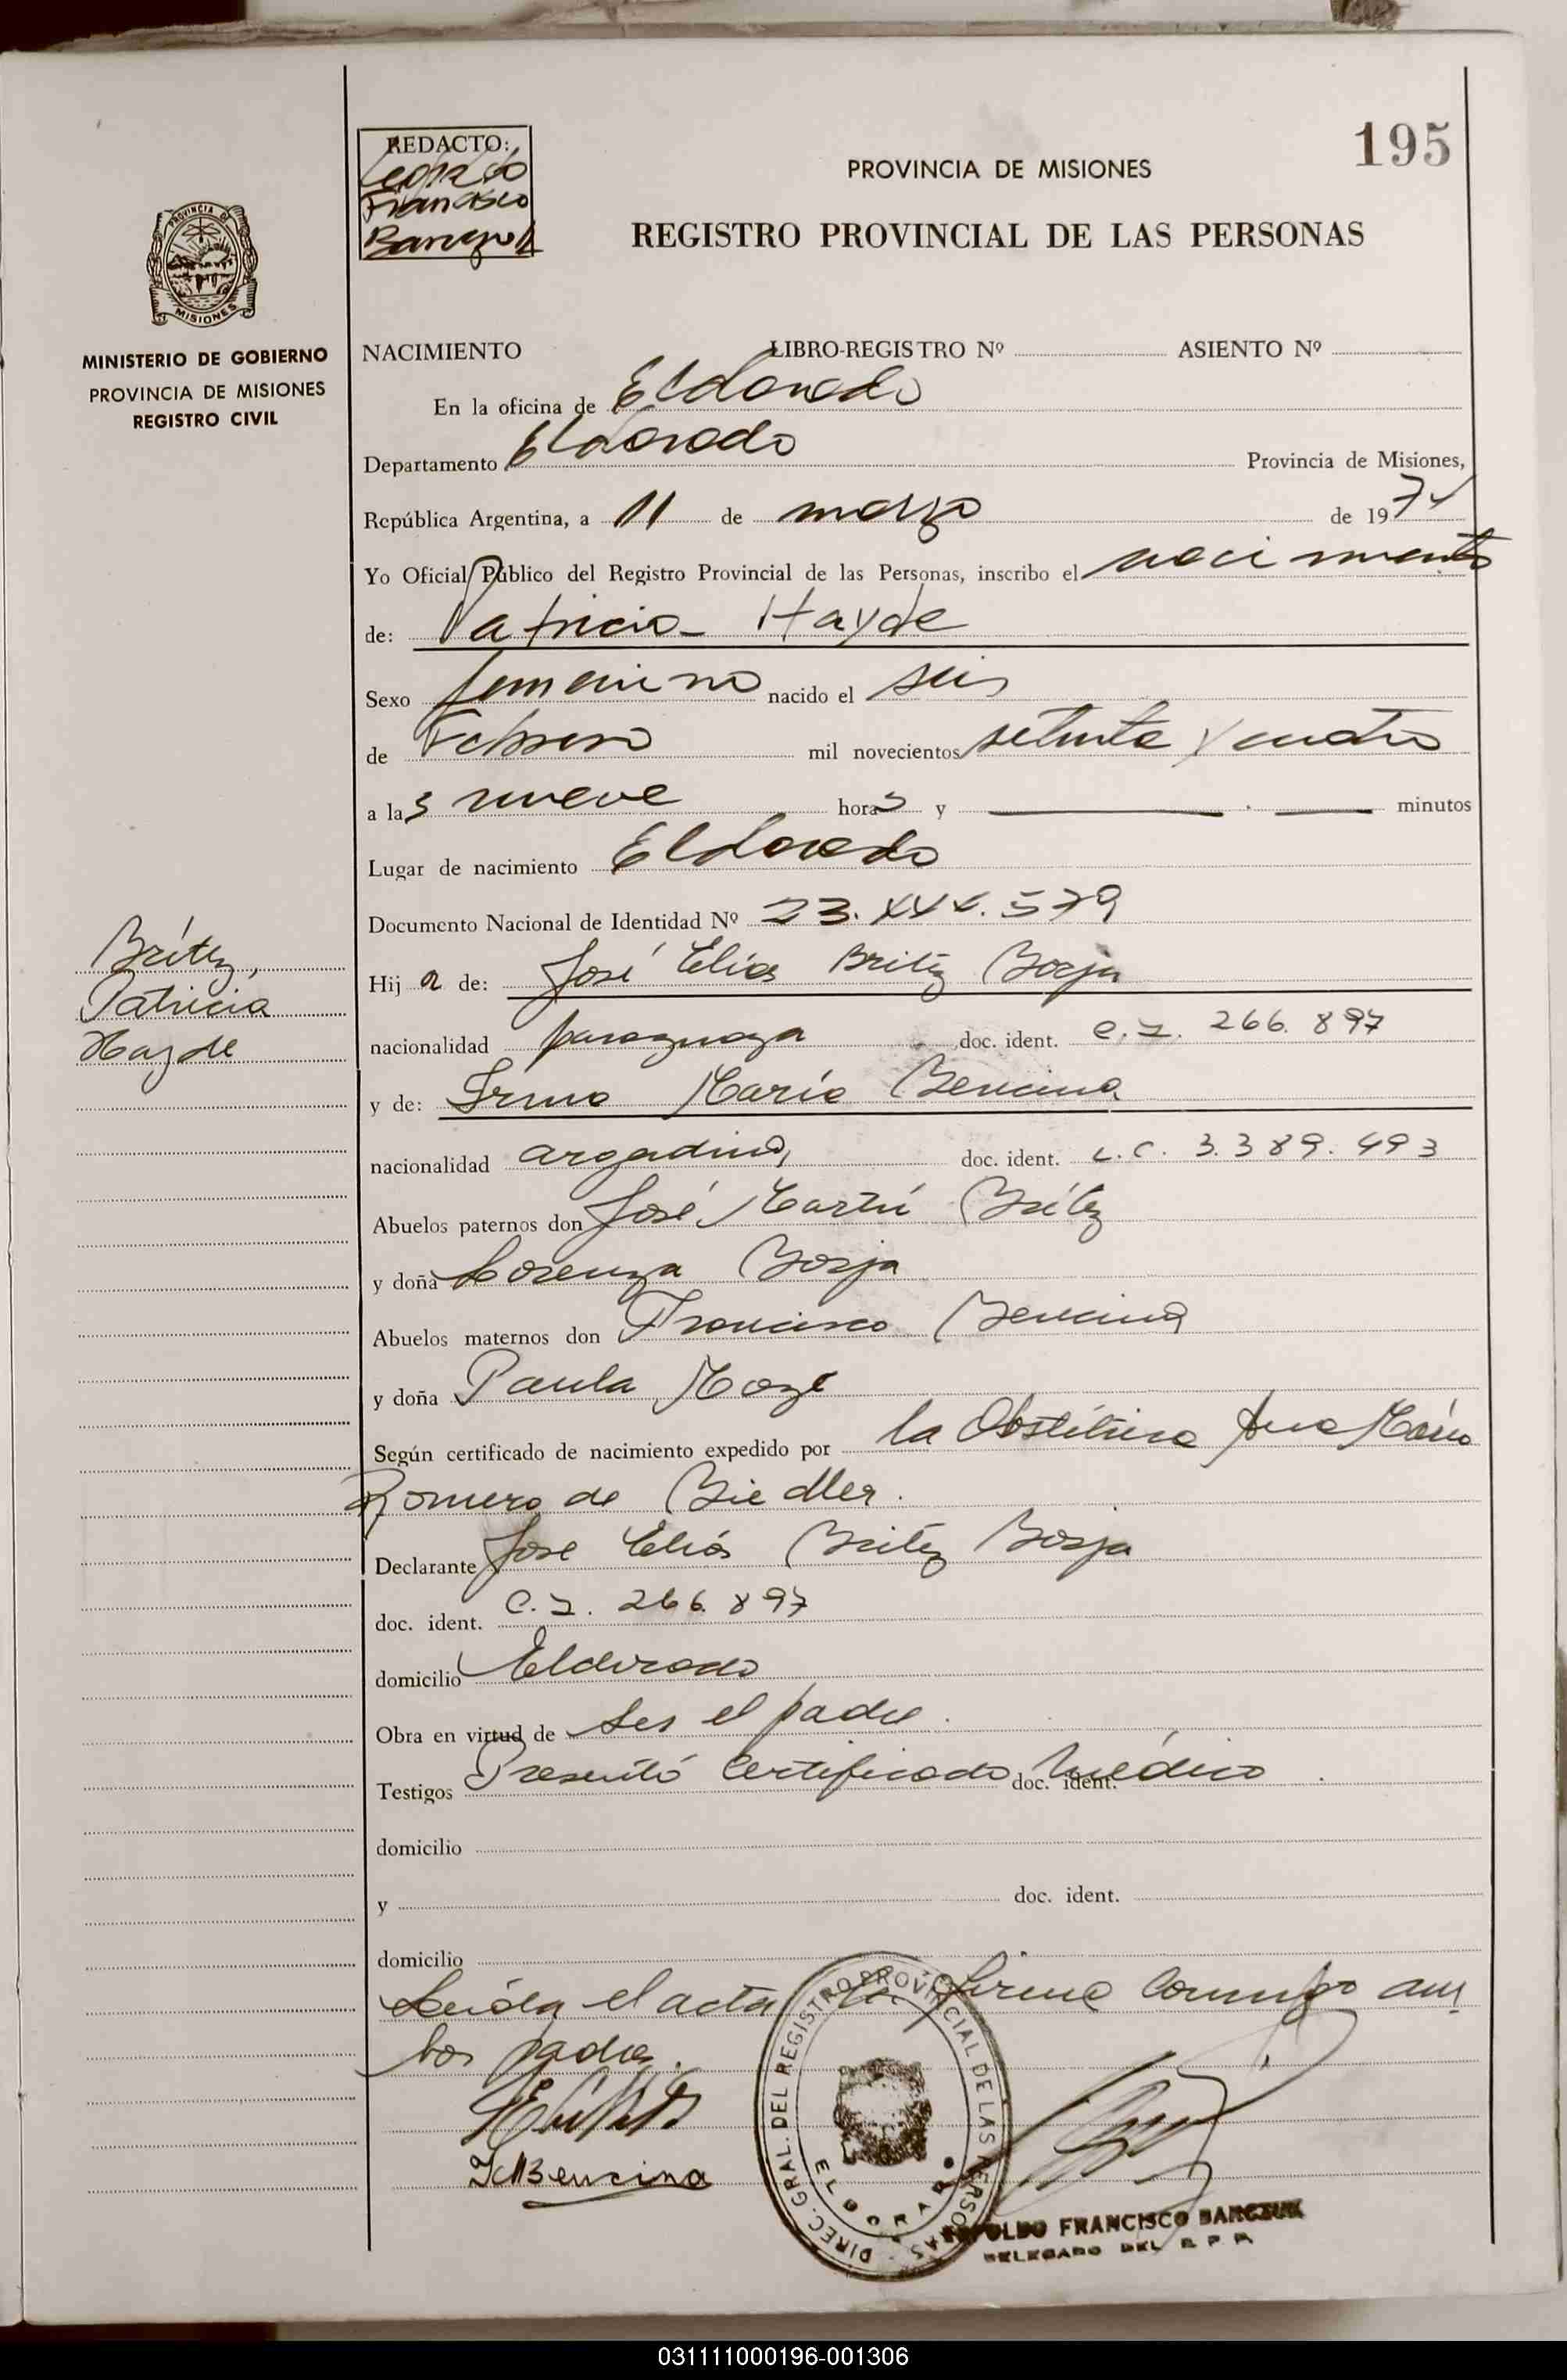 195
REDACTO:
Leopoldo
Francisco
PROVINCIA DE MISIONES
REGISTRO PROVINCIAL DE LAS PERSONAS
PROVINCIA DE
MISIONES
MINISTERIO DE GOBIERNO
PROVINCIA DE MISIONES
REGISTRO CIVIL
NACIMIENTO LIBRO-REGISTRO Nº ASIENTO Nº
En la oficina de Eldorado
Departamento Eldorado Provincia de Misiones,
República Argentina, a 11 de marzo de 1974
Yo Oficial Público del Registro Provincial de las Personas, inscribo el nacimiento
de: Patricia Hayde
Sexo femenino nacido el seis
de Febrero mil novecientos setenta y cuatro
a las nueve horas y minutos
Lugar de nacimiento Eldorado
Documento Nacional de Identidad Nº 23. 579
Britez,
Patricia
Hayde
Hija de: José Elías Britez Borja
nacionalidad paraguaya doc. ident. C.I. 266.897
y de: Irma María Bencina
nacionalidad argentina, doc. ident. L.C. 3.389.493
Abuelos paternos don José Martín Brítez
y doña Lorenza Borja
Abuelos maternos don Francisco Bencina
y doña Paula
Según certificado de nacimiento expedido por la Obstétrica Ana María
Romero de Biedler.
Declarante José Elías Britez Borja
doc. ident. C.I. 266.897
domicilio Eldorado
Obra en virtud de ser el padre.
Testigos Presentó Certificado doc. ident. Médico.
domicilio
y doc. ident.
domicilio
Leída el acta la firma conmigo am
bos padres.
IMBencina
DIREC. GRAL. DEL REGISTRO PROVINCIAL DE LAS PERSONAS
ELDORADO
LEOPOLDO FRANCISCO BARCZUK
DELEGADO DEL R P P
031111000196-001306